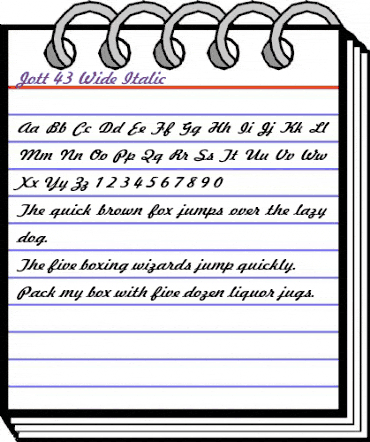 Jott 43 Wide Italic
Aa Bb Cc Dd Ee Ff Gg Hh Ii Jj Kk Ll
Mm Nn Oo Pp Qq Rr Ss Tt Uu Vv Ww
Xx Yy Zz 1 2 3 4 5 6 7 8 9 0
The quick brown fox jumps over the lazy
dog.
The five boxing wizards jump quickly.
Pack my box with five dozen liquor jugs.